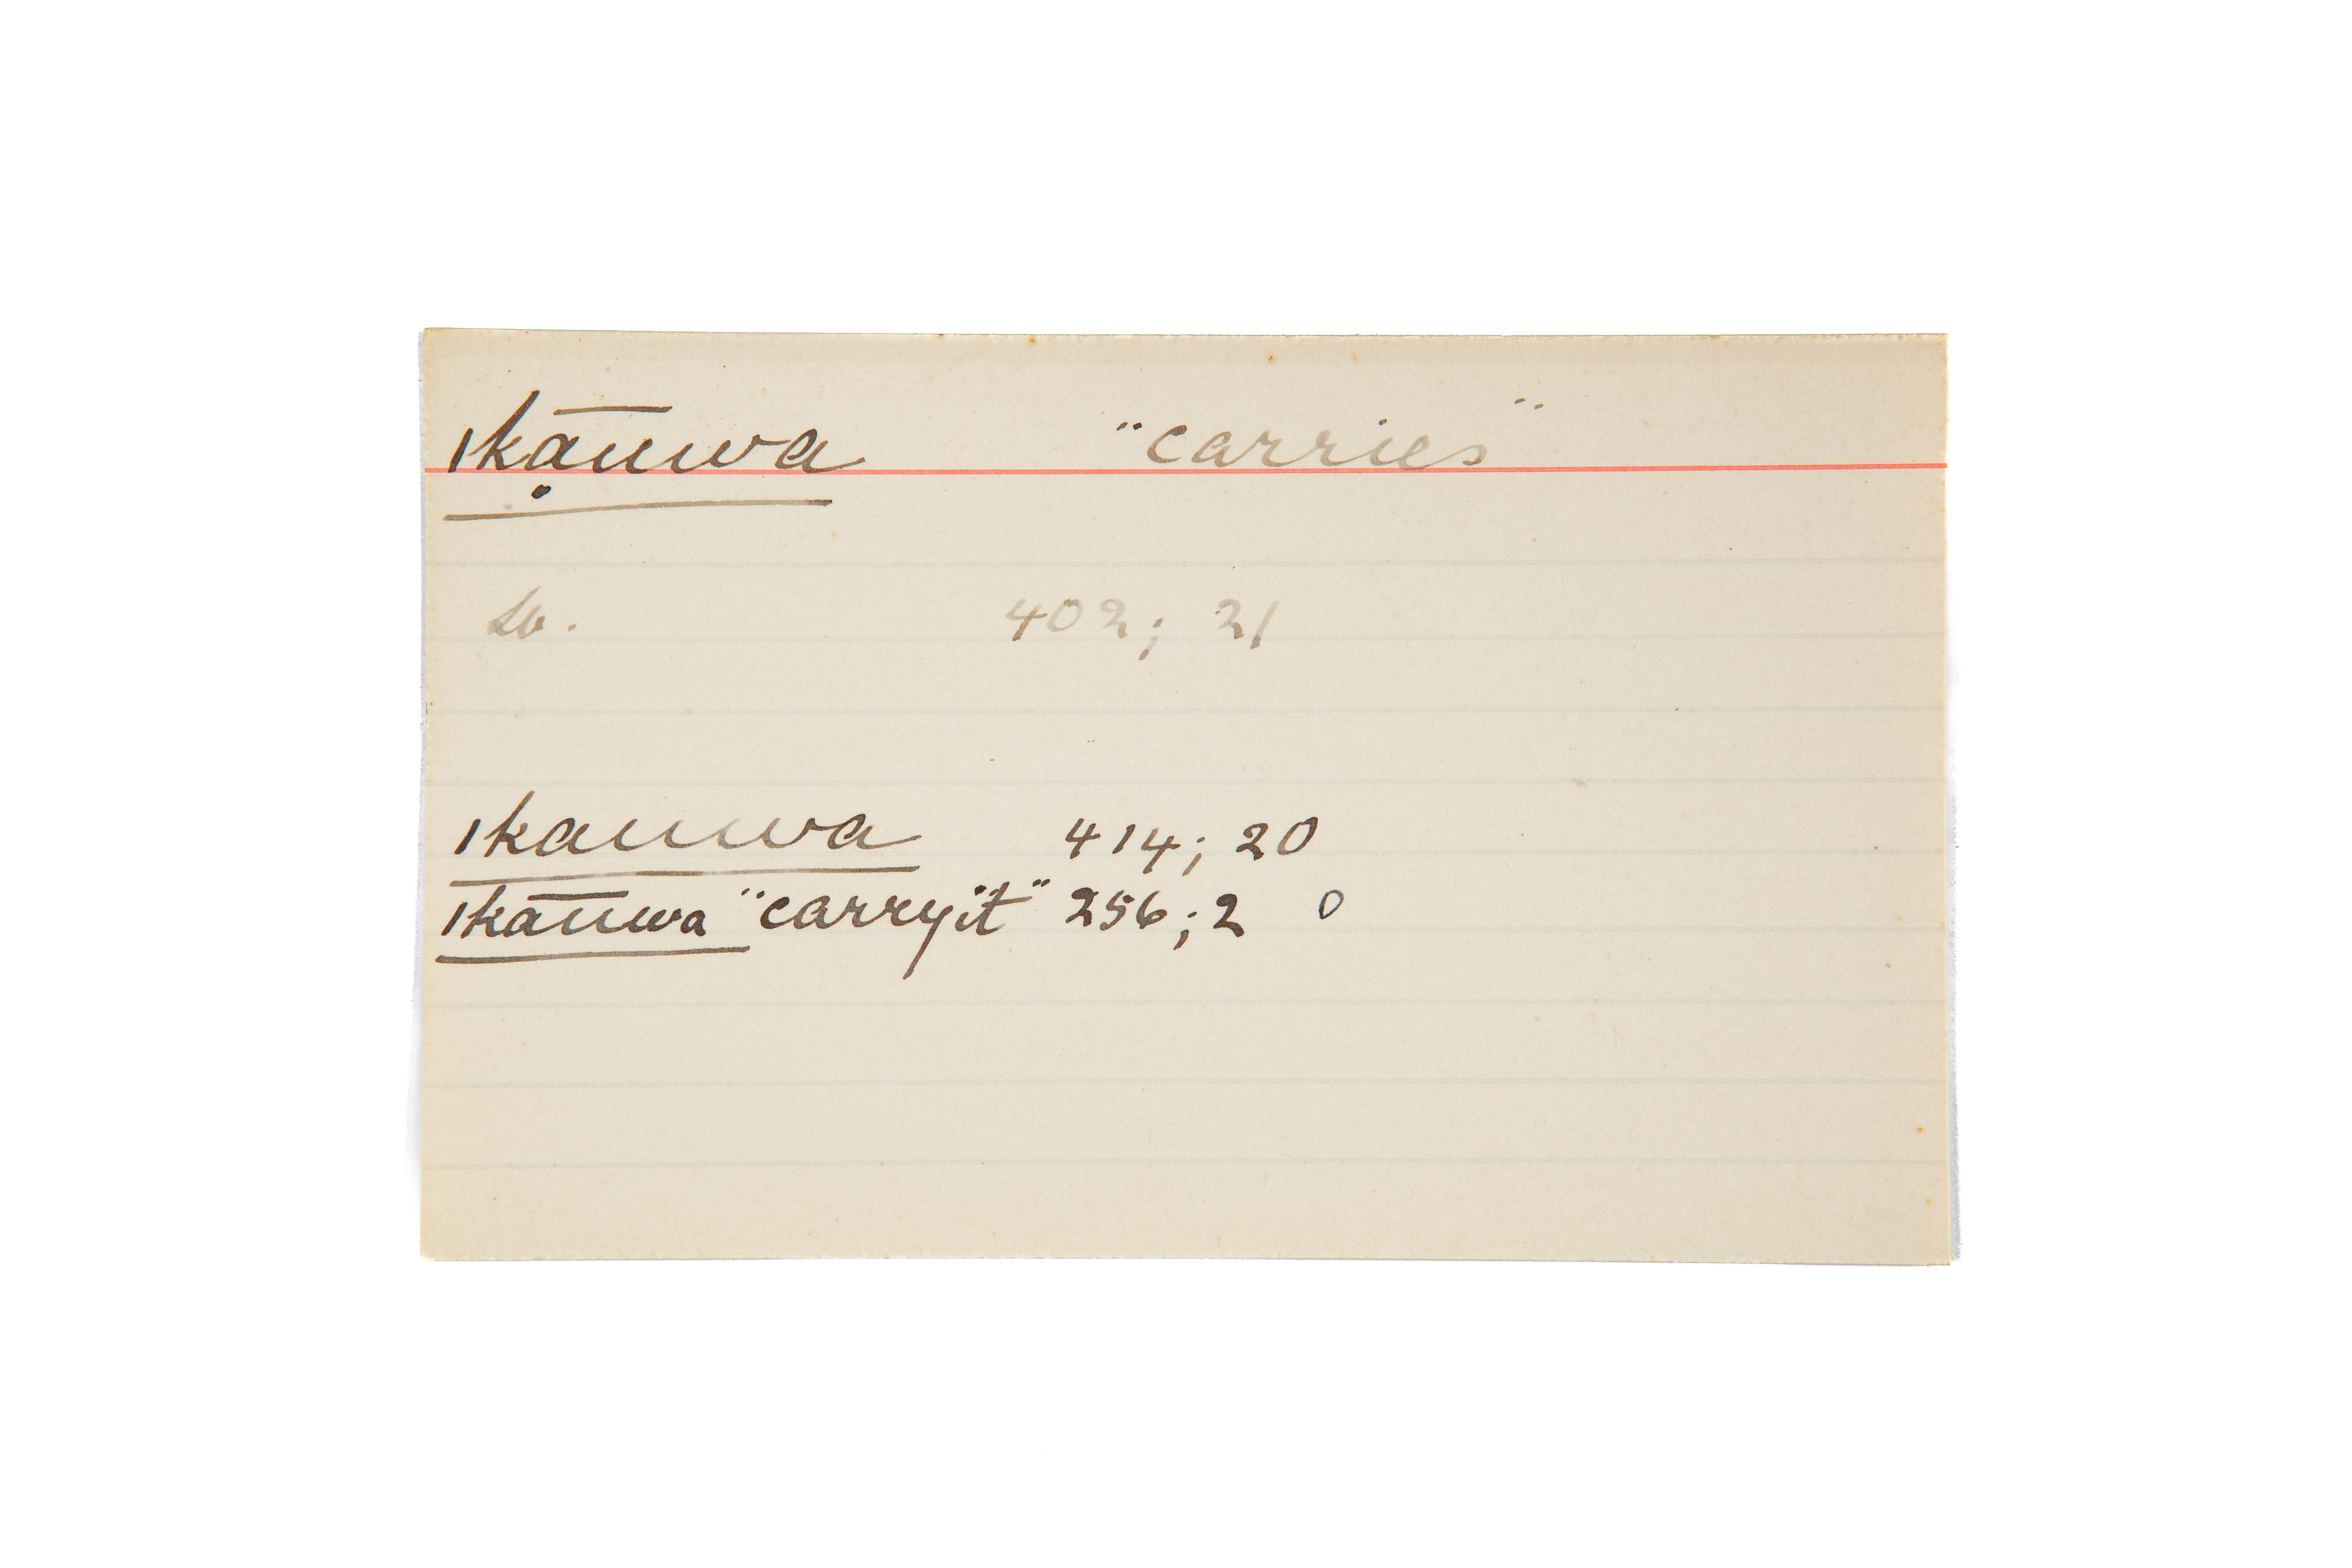 ıkạ̄ūwa "carries"
402; 21
ıkauwa 414; 20
ıkāūwa "carry it" 256; 2 0